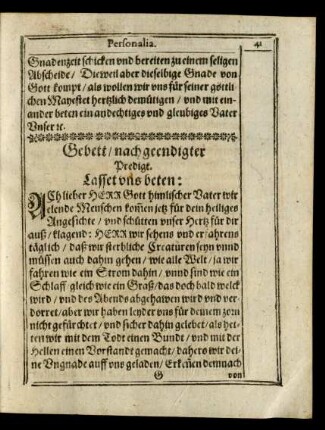 Personalia. 41
Gnadenzeit schicken und bereiten zu einem seligen
Abscheide / Dieweil aber dieselbige Gnade von
Gott kompt / als wollen wir uns für seiner göttli-
chen Mayestet hertzlich demütigen / und mit ein-
ander beten ein andechtiges und gleubiges Vater
Unser ꝛc.
Gebett / nach geendigter
Predigt.
Lasset uns beten:
ACh lieber HERR Gott himlischer Vater wir
elende Menschen kom̃en jetz für dein heiliges
Angesichte / und schütten unser Hertz für dir
auß / klagend: HERR wir sehens und erfahrens
täglich / daß wir sterbliche Creaturen seyn unnd
müssen auch dahin gehen / wie alle Welt / ja wir
fahren wie ein Strom dahin / unnd sind wie ein
Schlaff gleich wie ein Graß / das doch bald welck
wird / und des Abends abgehawen wird und ver-
dorret / aber wir haben leyder uns für deinem zorn
nicht gefürchtet / und sicher dahin gelebet / als het-
ten wir mit dem Todt einen Bundt / und mit der
Hellen einen Vorstandt gemacht / dahero wir dei-
ne Ungnade auff uns geladen / Erkeñen demnach
G von